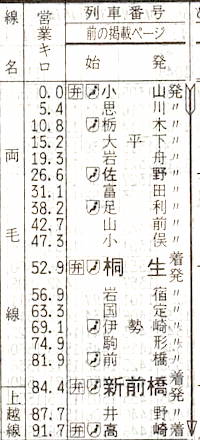 線名 営業キロ 列車番号
前の掲載ページ
始発
両毛線
0.0 弁 小山 発
5.4 思川 〃
10.8 栃木 〃
15.2 大平下 〃
19.3 岩舟 〃
26.6 佐野 〃
31.1 富田 〃
38.2 足利 〃
42.7 山前 〃
47.3 小俣 〃
52.9 弁 桐生 着発
56.9 岩宿 〃
63.3 国定 〃
69.1 伊勢崎 〃
74.9 駒形 〃
81.9 前橋 〃
84.4 弁 新前橋 着発
上越線
87.7 井野 〃
91.7 弁 高崎 着